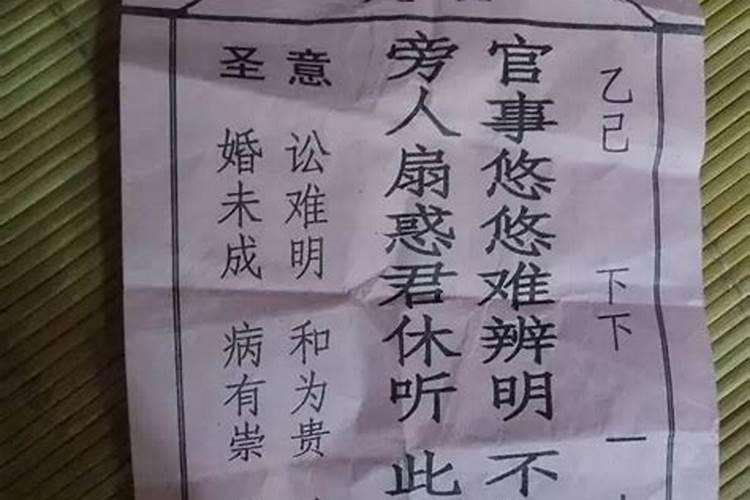 乙己 下下 一
官事悠悠难辨明 不
旁人扇惑君休听 此
圣意
讼难明 和为贵
婚未成 病有崇